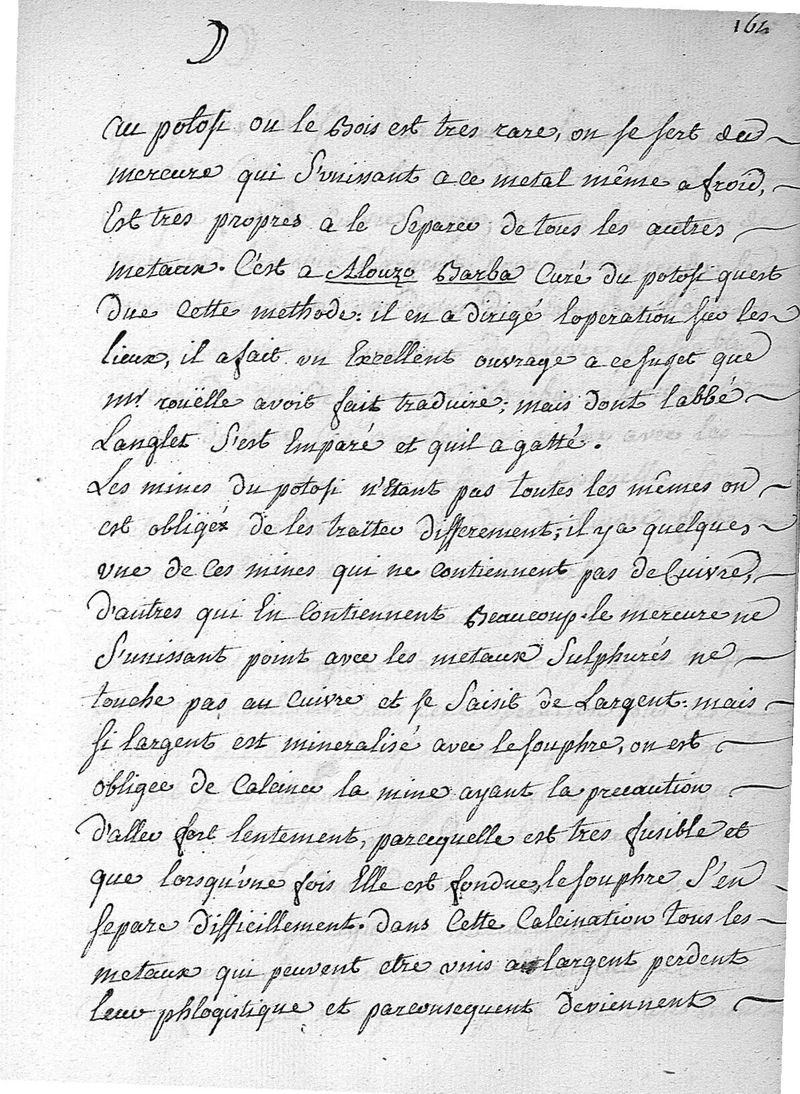 164
au potosi ou le Bois est tres rare, on se sert du
mercure qui S'unissant a ce metal même a froid,
Est tres propres a le Separer de tous les autres
metaux. C'est a Alonzo Barba Curé du potosi quest
due Cette methode: il en a dirigé loperation sur les
lieux, il a fait un Excellent ouvrage a ce sujet que
mr rouëlle avoit fait traduire; mais dont labbé
Langlet S'est Emparé et quil a gatté.
Les mines du potosi n'étant pas toutes les mêmes on
est obligéz de les traiter differement; il y a quelques
une de Ces mines qui ne contiennent pas de Cuivre,
d'autres qui En Contiennent Beaucoup. le mercure ne
S'unissant point avec les metaux Sulphurés ne
touche pas au Cuivre et se Saisit de Largent: mais
si largent est mineralisé avec le souphre, on est
obligée de Calciner la mine ayant la precaution
d'aller fort lentement, parcequelle est tres fusible et
que lorsqu'une fois Elle est fondue, le souphre S'en
separe difficillement. dans Cette Calcination tous les
metaux qui peuvent etre unis a largent perdent
leur phlogistique et parconsequent deviennent